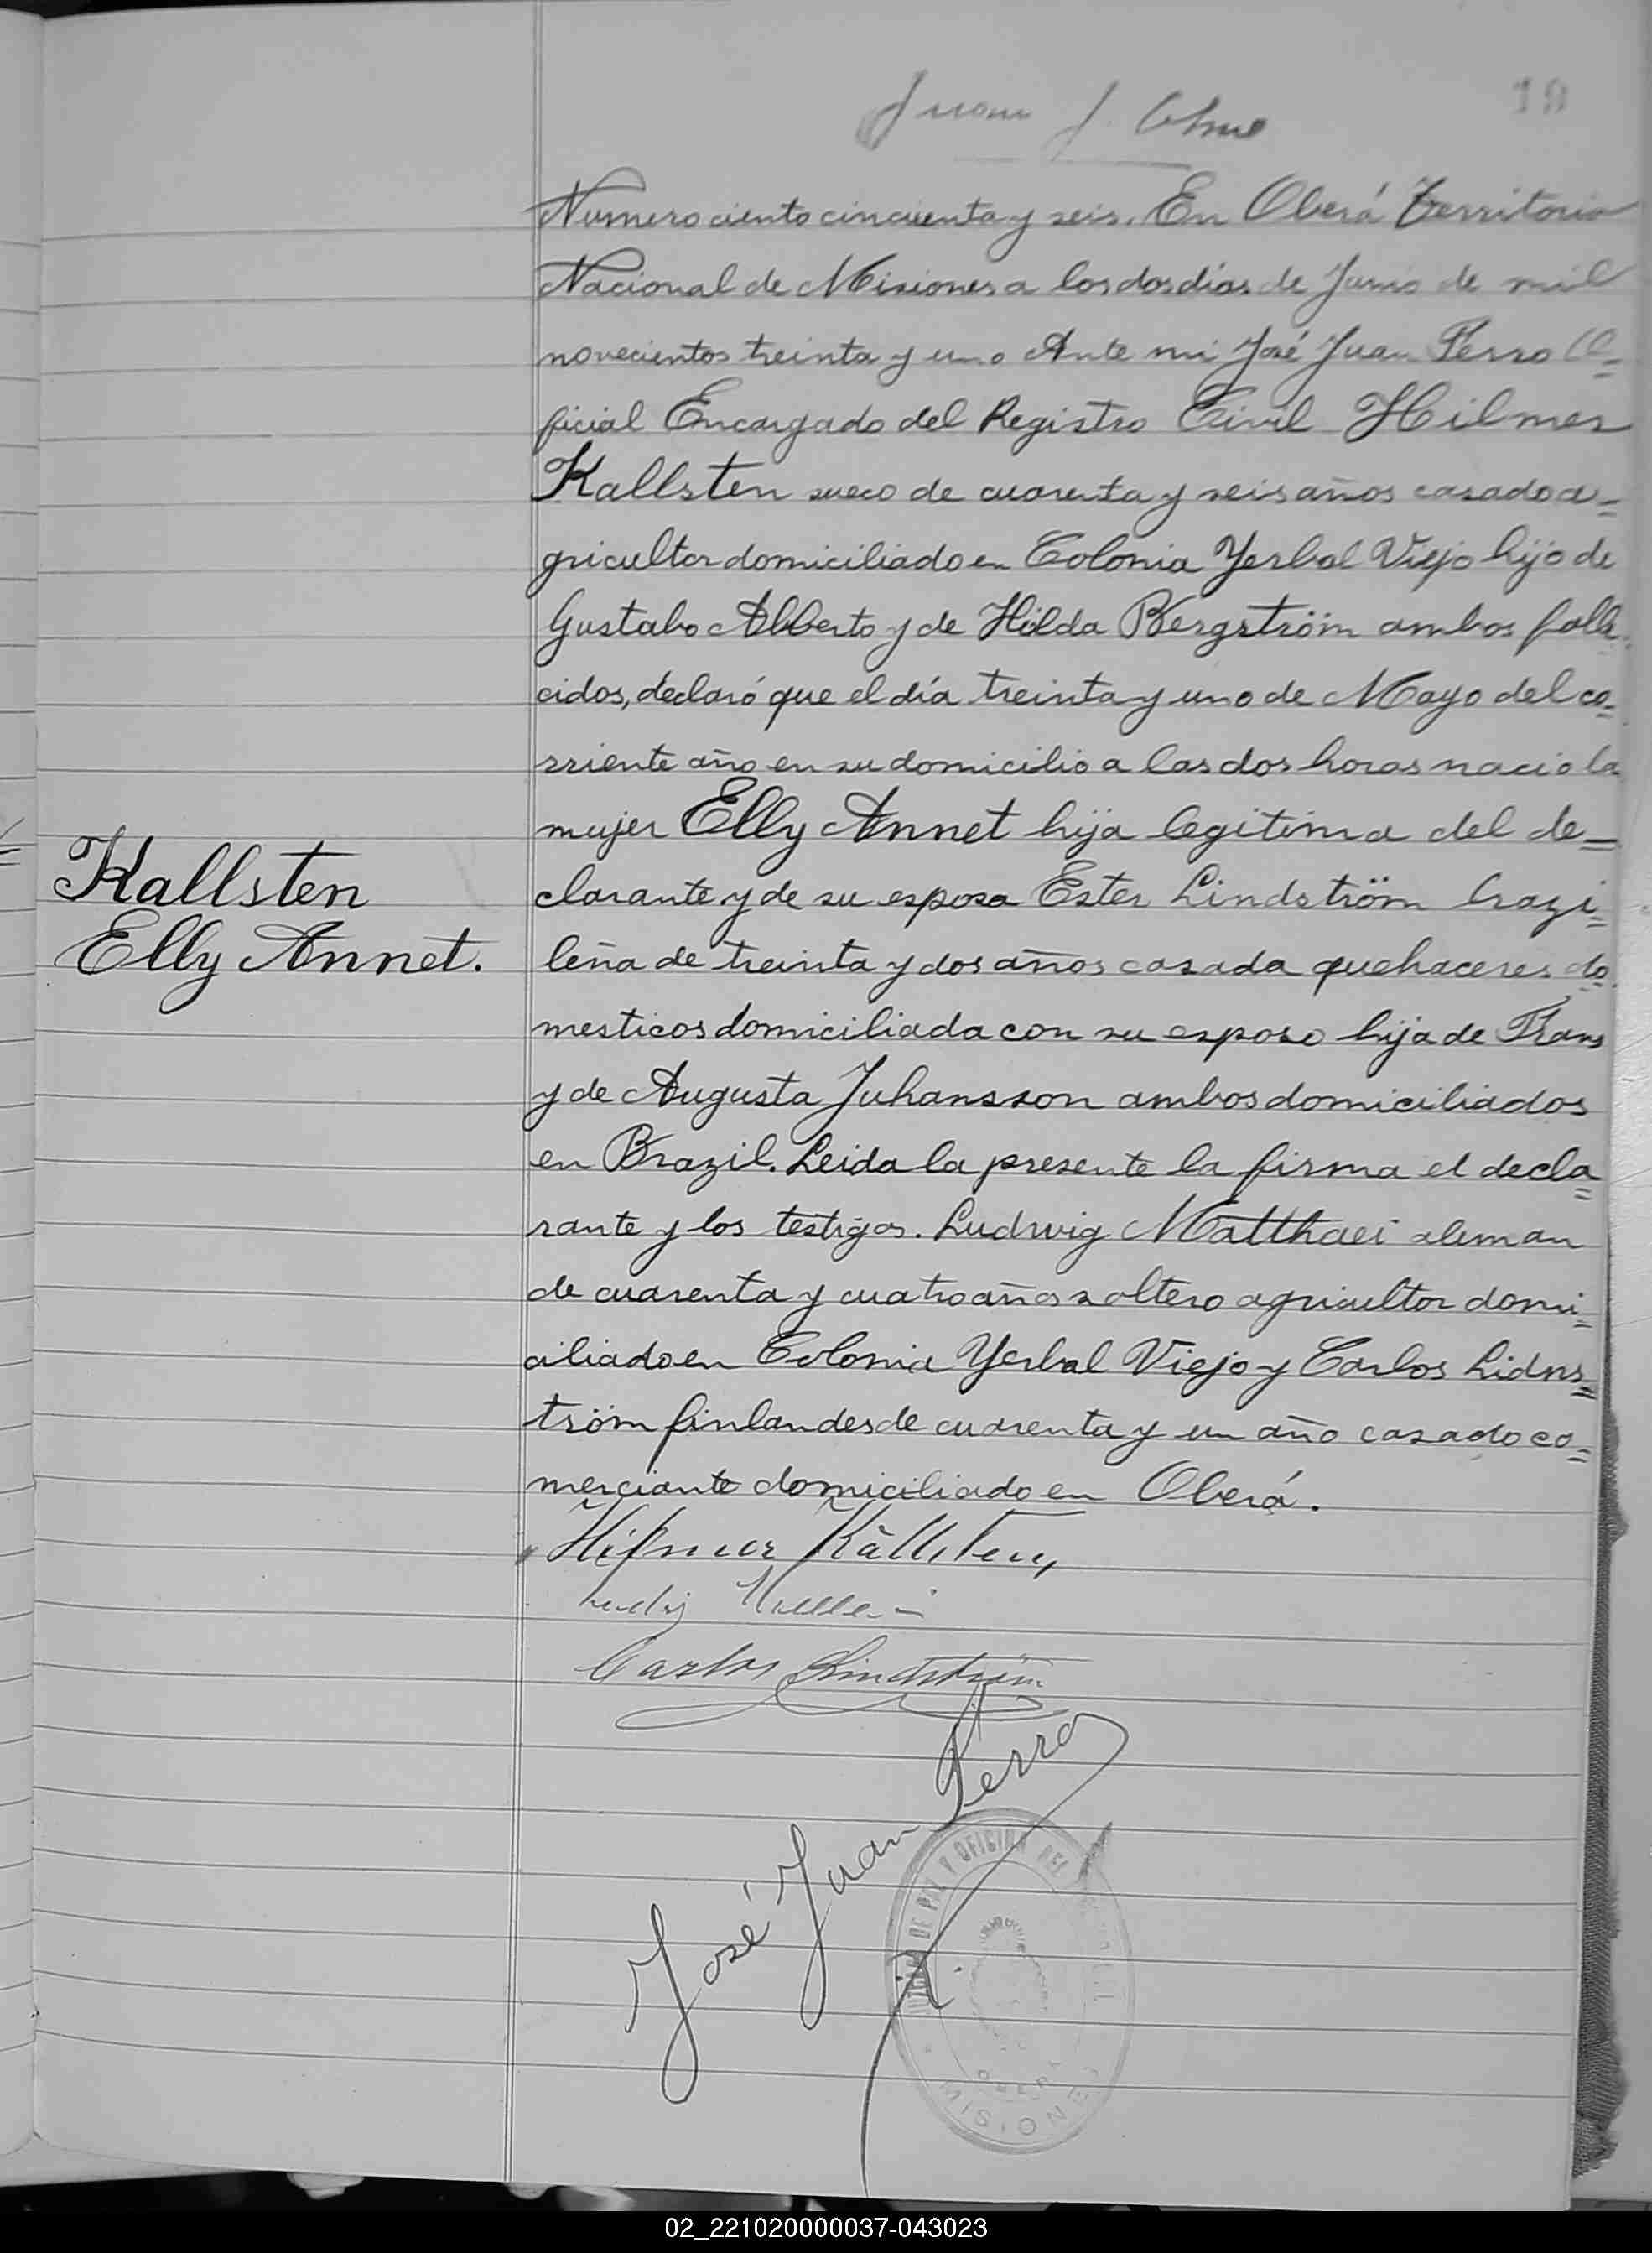 Juan J.
19
Numero ciento cincuenta y seis. En Oberá Territorio
Nacional de Misiones a los dos días de Junio de mil
novecientos treinta y uno Ante mi José Juan Perro O=
ficial Encargado del Registro Civil Hilmer
Kallsten sueco de cuarenta y seis años casado a=
gricultor domiciliado en Colonia Yerbal Viejo hijo de
Gustabo Alberto y de Hilda Bergström ambos falle
cidos, declaró que el día treinta y uno de Mayo del co=
rriente año en su domicilio a las dos horas nacio la
mujer Elly Annet hija legitima del de=
Kallsten
clarante y de su esposa Ester Lindström brazi=
Elly Annet.
leña de treinta y dos años casada quehaceres do
mesticos domiciliada con su esposo hija de Frans
y de Augusta Juhansson ambos domiciliados
en Brazil. Leida la presente la firma el decla=
rante y los testigos. Ludwig Matthaei aleman
de cuarenta y cuatro años soltero agricultor domi=
ciliado en Colonia Yerbal Viejo y Carlos Lidns=
tröm finlandes de cuarenta y un año casado co=
merciante domiciliado en Oberá.
Hilmer Källsten,
Carlos Lindström
José Juan Perro
DE PAZ Y OFICINA DEL
OBERA
MISIONES
02_221020000037-043023